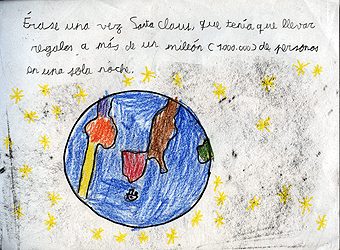 Érase una vez Santa Claus, que tenía que llevar
regalos a más de un millón (1000.000) de personas
en una sola noche.